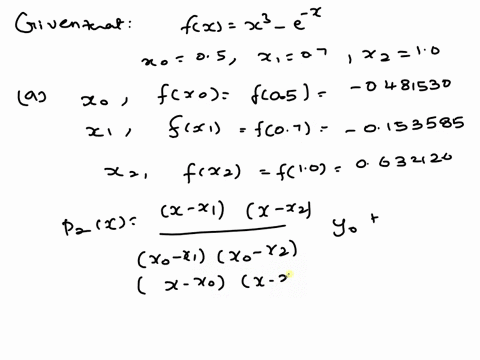 Given that: f(x) = x³ - e^-x
x₀ = 0.5, x₁ = 07, x₂ = 1.0
(a) x₀, f(x₀) = f(0.5) = -0 481530
x₁, f(x₁) = f(0.7) = -0.153585
x₂, f(x₂) = f(1.0) = 0.632120
P₂(x) = (x-x₁) (x-x₂) y₀ +
(x₀-x₁) (x₀-x₂)
( x-x₀) (x-